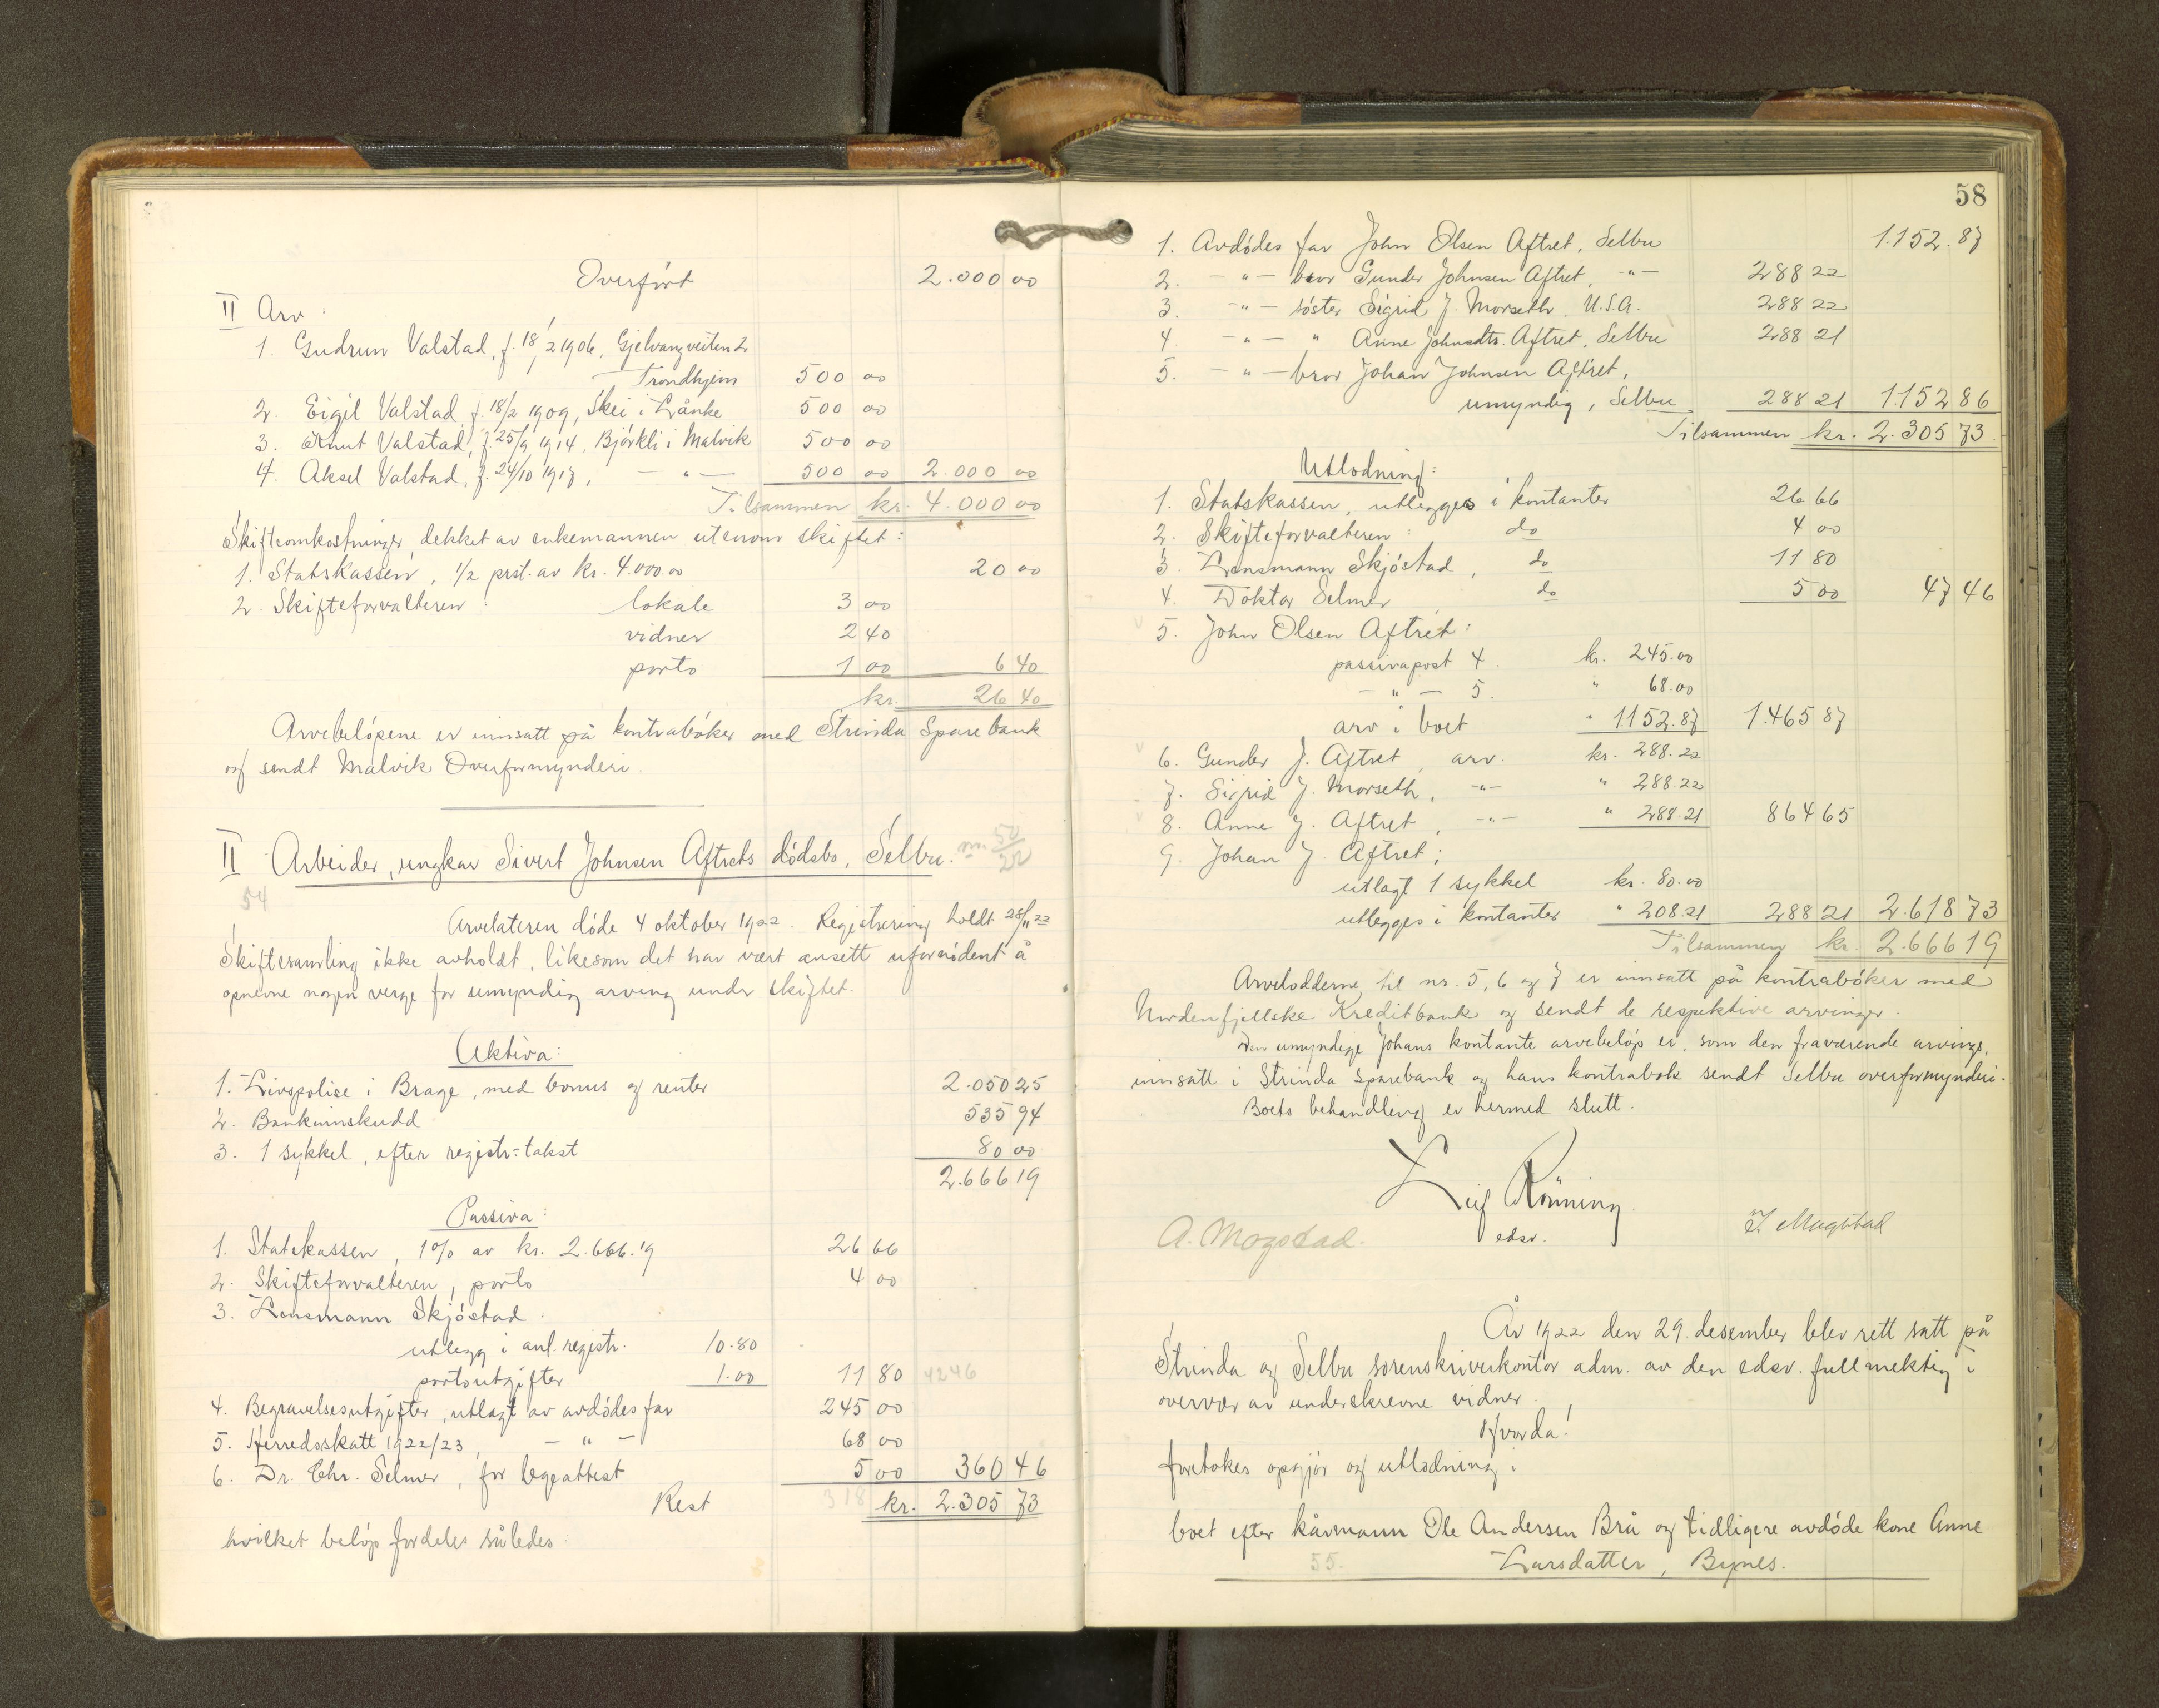 Overført 2.000 00
II Arv:
1. Gudrun Valstad, f. 18/2 1906, Gjelvangveiten 2
Trondhjem 500 00
2. Eigil Valstad, f. 18/2 1909, Skei i Lånke 500 00
3. Knut Valstad, f. 25/9 1914, Bjørkli i Malvik 500 00
4. Aksel Valstad, f. 24/10 1917, — " — 500 00 2.000 00
Tilsammen kr. 4.000 00
Skifteomkostninger, dekket av enkemannen utenom skiftet:
1. Statskassen, 1/2 prst. av kr. 4.000.00 20 00
2. Skifteforvalteren: lokale 3 00
vidner 2 40
porto 1 00 6 40
kr. 26 40
Arvebeløpene er innsatt på kontrabøker med Strinda Sparebank
og sendt Malvik Overformynderi.
II Arbeider, ungkar Sivert Johnsen Aftrets dødsbo, Selbu. nr. 50/22
54
Arvelateren døde 4 oktober 1922. Registrering holdt 28/11 22
Skiftesamling ikke avholdt, likesom det har vært ansett ufornødent å
opnevne nogen verge for umyndig arving under skiftet.
Aktiva:
1. Livspolise i Brage, med bonus og renter 2.050 25
2. Bankinnskudd 535 94
3. 1 sykkel, efter registr.=takst 80 00
2.666 19
Passiva:
1. Statskassen, 1% av kr. 2.666.19 26 66
2. Skifteforvalteren, porto 4 00
3. Lensmann Skjøstad
utlegg i anl. registr. 10.80
portoutgifter 1.00 11 80 4246
4. Begravelsesutgifter, utlagt av avdødes far 245 00
5. Herredsskatt 1922/23, — " — 68 00
6. Dr. Chr. Selmer, for legeattest 5 00 360 46
Rest 318 kr. 2.305 73
hvilket beløp fordeles således:
58
1. Avdødes far John Olsen Aftret, Selbu 1.152.87
2. — " — bror Gunder Johnsen Aftret, — " — 288 22
3. — " — søster Sigrid J. Morseth, U.S.A. 288 22
4. — " — " Anne Johnsdtr. Aftret, Selbu 288 21
5. — " — bror Johan Johnsen Aftret,
umyndig, Selbu 288 21 1.152 86
Tilsammen kr. 2.305 73
Utlodning:
1. Statskassen, utlegges i kontanter 26 66
2. Skifteforvalteren: do 4 00
3. Lensmann Skjøstad, do 11 80
4. Doktor Selmer do 5 00 47 46
5. John Olsen Aftret:
passivapost 4. kr. 245.00
— " — 5. " 68.00
arv i boet " 1152.87 1.465 87
6. Gunder J. Aftret, arv. kr. 288.22
7. Sigrid J. Morseth, — " — " 288.22
8. Anne J. Aftret, — " — " 288.21 864 65
9. Johan J. Aftret;
utlagt 1 sykkel kr. 80.00
utlegges i kontanter " 208.21 288 21 2.618 73
Tilsammen kr. 2.666 19
Arvelodderne til nr. 5, 6 og 7 er innsatt på kontrabøker med
Nordenfjellske Kreditbank og sendt de respektive arvinger.
Den umyndige Johans kontante arvebeløp er, som den fraværende arvings,
innsatt i Strinda Sparebank og hans kontrabok sendt Selbu overformynderi.
Boets behandling er hermed slutt.
Leif Rönning
edsv.
A. Mogstad.
J. Mogstad
År 1922 den 29. desember blev rett satt på
Strinda og Selbu sorenskriverkontor adm. av den edsv. fullmektig i
overvær av underskrevne vidner.
Hvorda!
foretokes opgjør og utlodning i
boet efter kårmann Ole Andersen Brå og tidligere avdøde kone Anne
55. Larsdatter, Bynes.